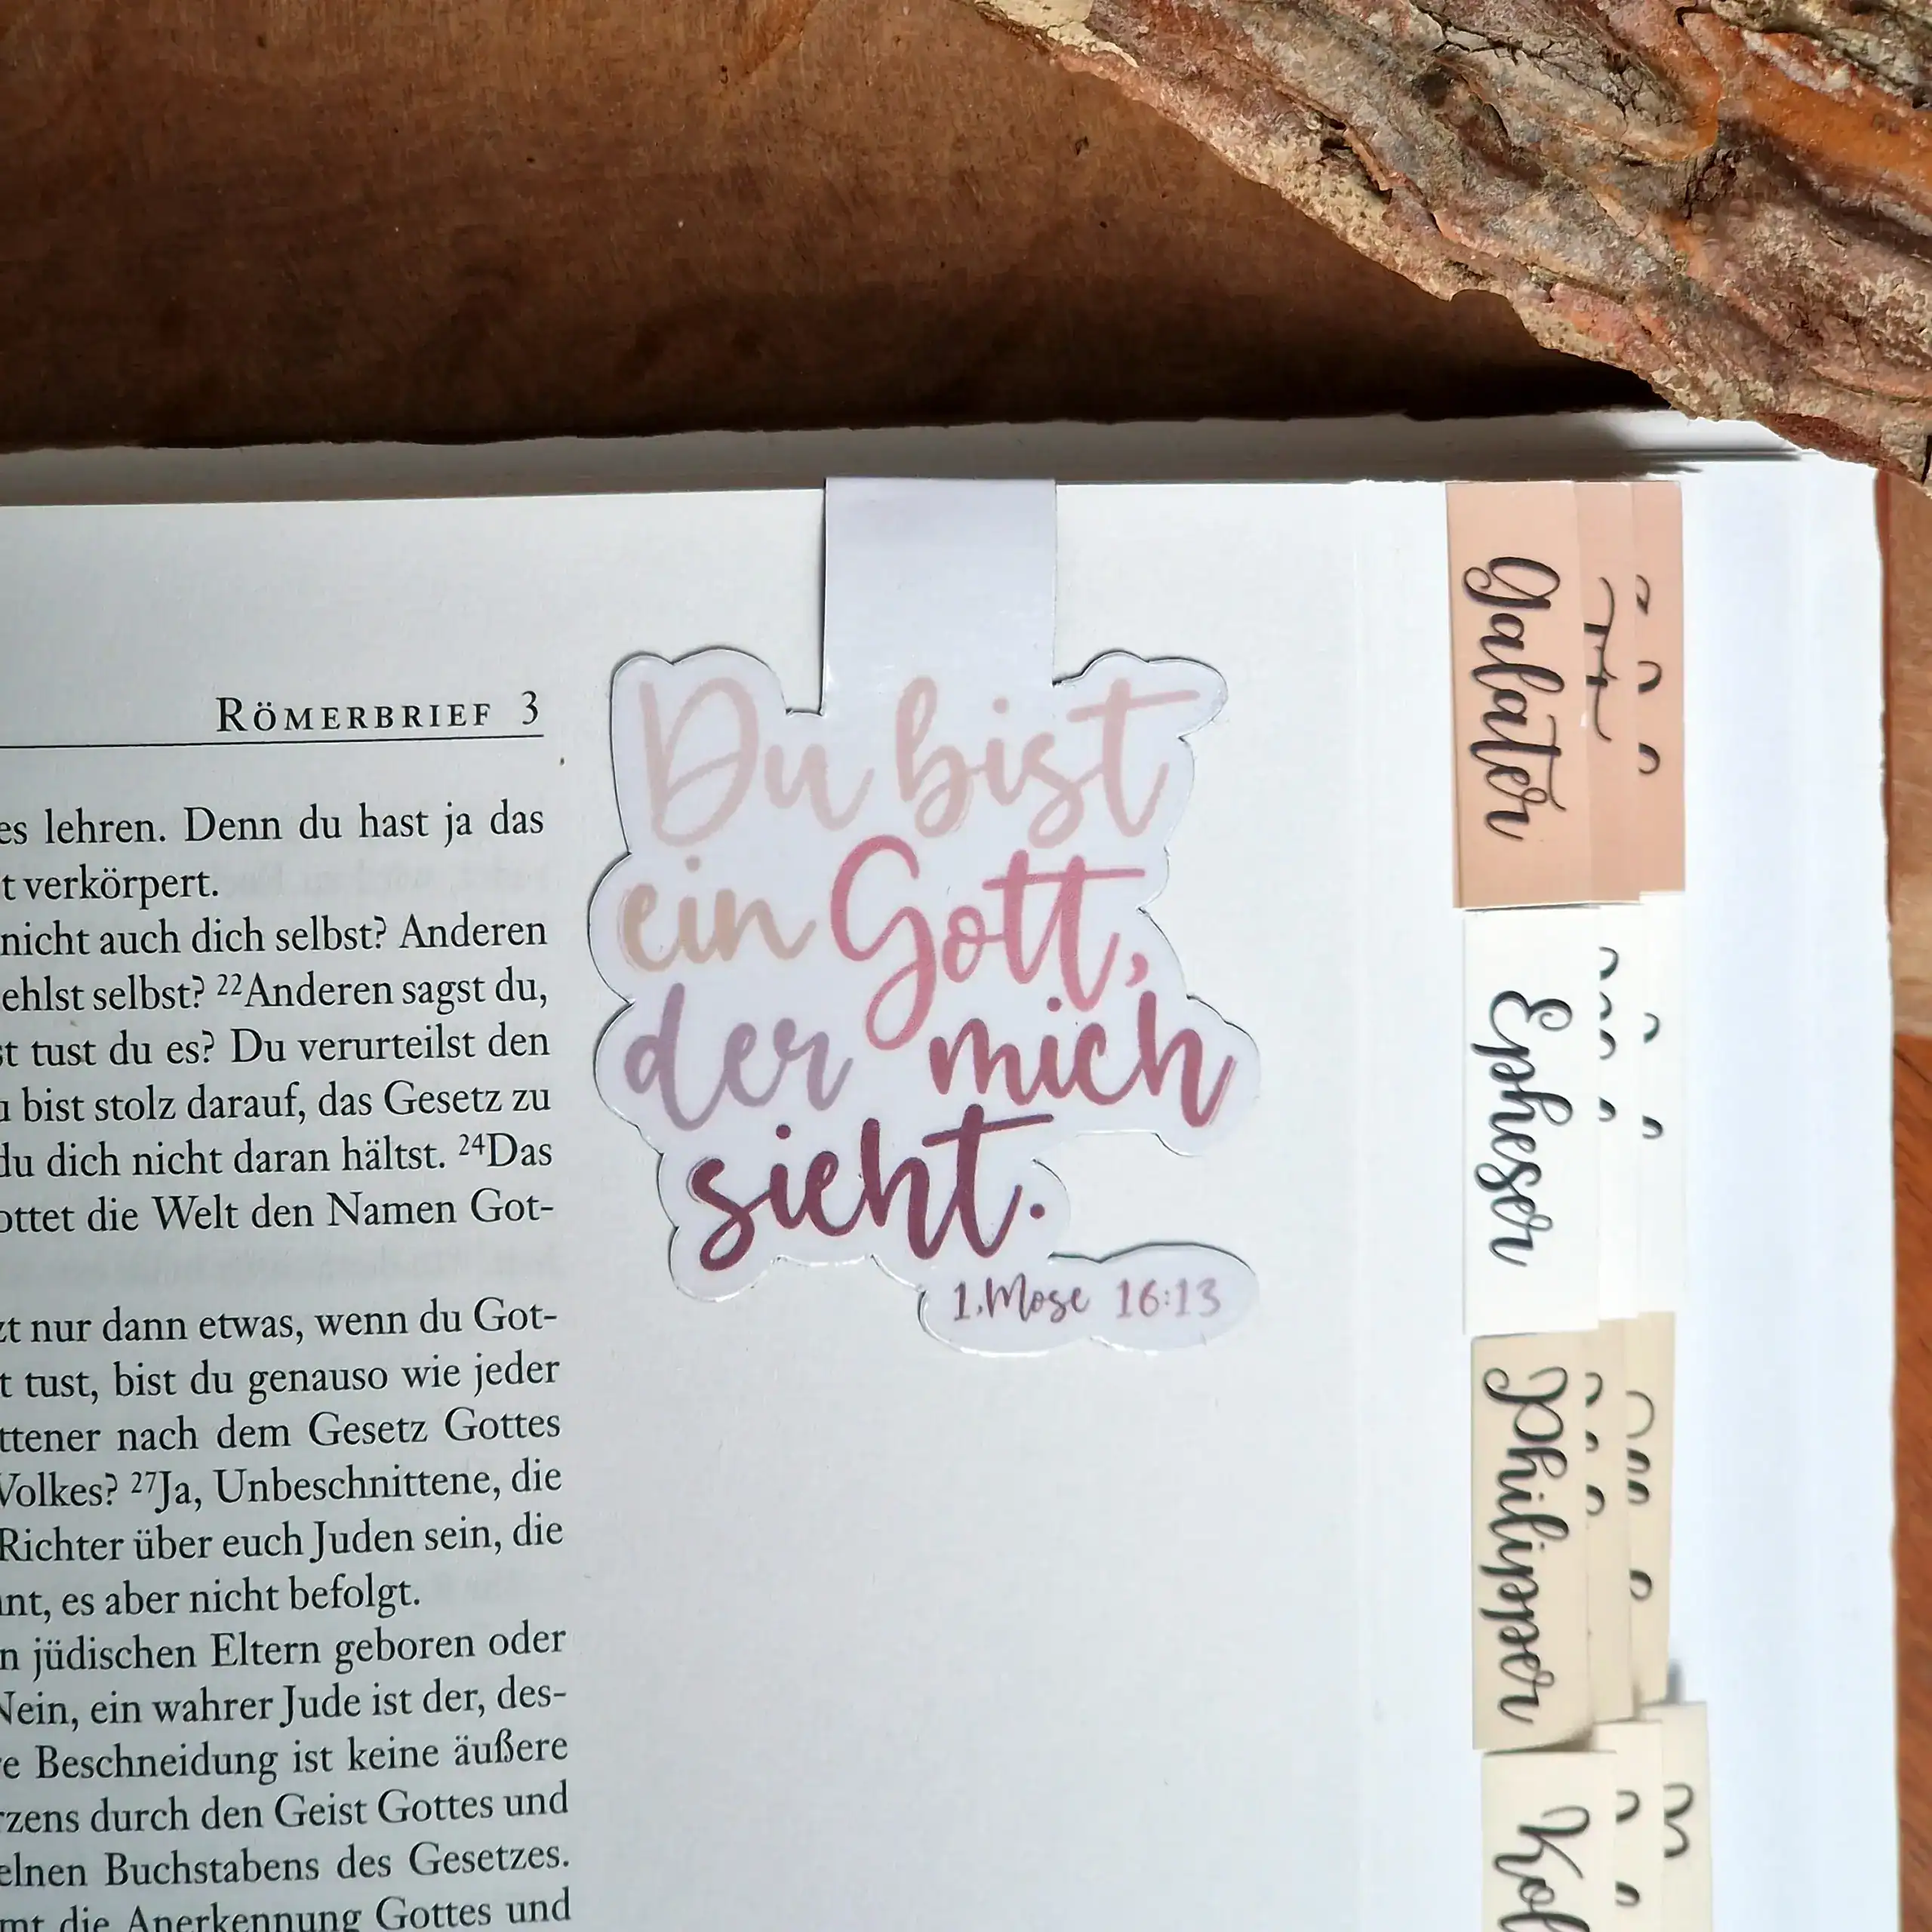 RÖMERBRIEF 3
es lehren. Denn du hast ja das
t verkörpert.
nicht auch dich selbst? Anderen
ehlst selbst? 22Anderen sagst du,
st tust du es? Du verurteilst den
u bist stolz darauf, das Gesetz zu
du dich nicht daran hältst. 24Das
ottet die Welt den Namen Got-
zt nur dann etwas, wenn du Got-
t tust, bist du genauso wie jeder
ttener nach dem Gesetz Gottes
Volkes? 27Ja, Unbeschnittene, die
Richter über euch Juden sein, die
nnt, es aber nicht befolgt.
n jüdischen Eltern geboren oder
Nein, ein wahrer Jude ist der, des-
re Beschneidung ist keine äußere
rzens durch den Geist Gottes und
elnen Buchstabens des Gesetzes.
mt die Anerkennung Gottes und
Du bist
ein Gott,
der mich
sieht.
1.Mose 16:13
Galater
Epheser
Philipper
Kol